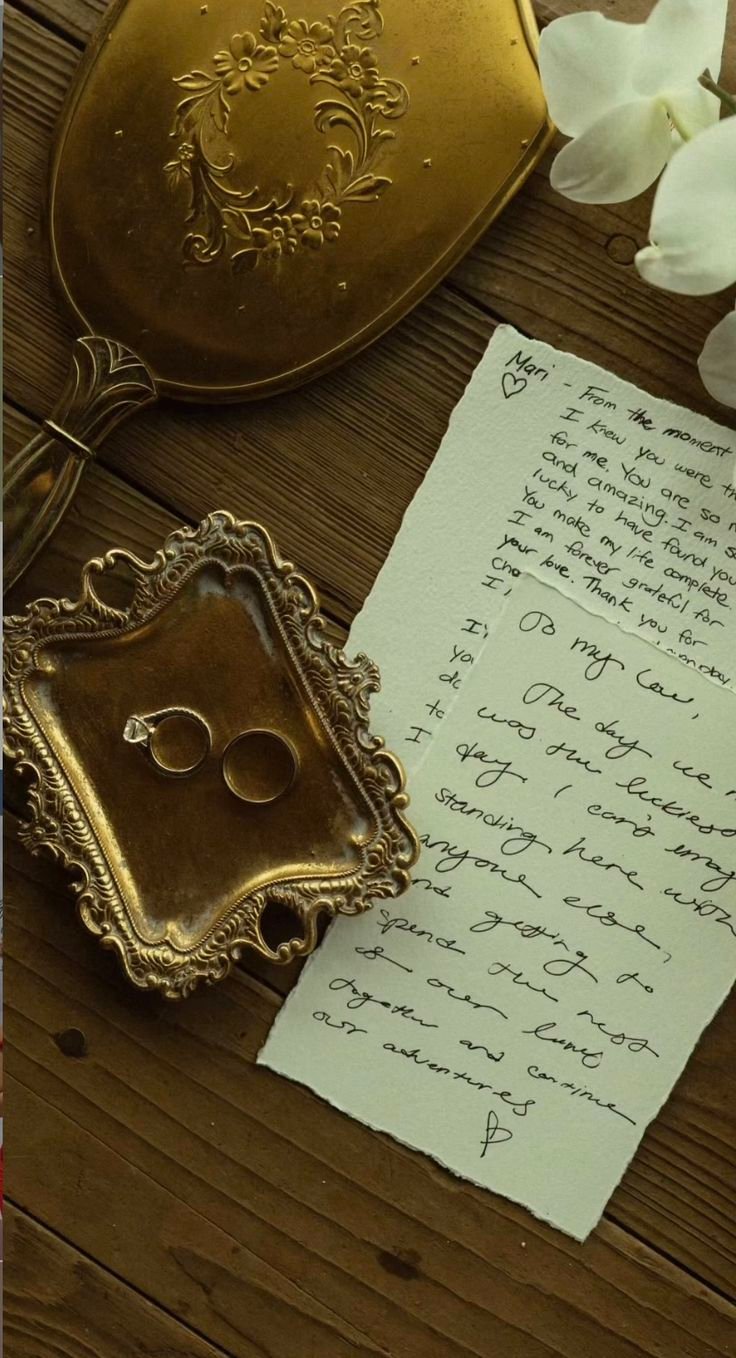 Mari - From the moment
I knew you were th
for me. You are so m
and amazing. I am s
lucky to have found you
You make my life complete.
I am forever grateful for
your love. Thank you for
cho
I,
I'
yo
do
to
I
To my Love,
The day we m
was the luckiest
day. I can't imag
standing here with
anyone else,
and getting to
spend the rest
of our lives
together and continue
our adventures